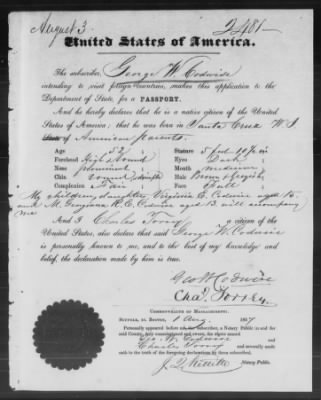 August 3.
2481
United States of America.
The subscriber, George W. Codwise
intending to visit foreign countries, makes this application to the
Department of State, for a PASSPORT.
And he hereby declares that he is a native citizen of the United
States of America; that he was born in Santa Cruz W. I
of American parents.
Age 52
Stature 5 feet 10 1/2 in
Forehead High & round
Eyes Dark
Nose prominent
Mouth medium
Chin round
Hair Brown & grayish
Complexion Fair
Face Full
My children, daughter Virginia C. Codwise aged 15
and Georgiana R. C. Codwise aged 13 will accompany
me
And I Charles Torrey a citizen of the
United States, also declare that said George W. Codwise
is personally known to me, and to the best of my knowledge and
belief, the declaration made by him is true.
Geo W Codwise
Chas. Torrey.
COMMONWEALTH OF MASSACHUSETTS.
SUFFOLK, SS. BOSTON, 1 Aug. 1867
Personally appeared before me the subscriber, a Notary Public in and for
said County, duly commissioned and sworn, the above named
Geo. W. Codwise
and Charles Torrey and severally made
oath to the truth of the foregoing declarations by them subscribed.
Notary Public.